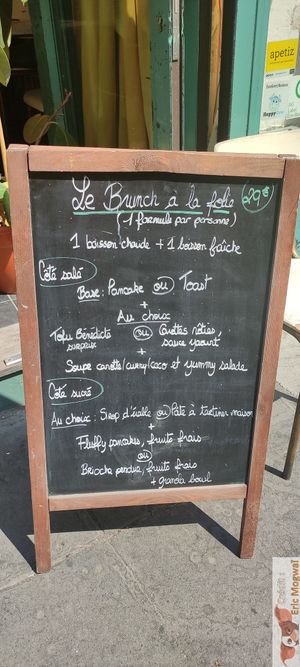 apetiz
Happy
Le Brunch a la folie 29€
(1 formule par personne)
1 boisson chaude + 1 boisson fraîche
Côté salé
Base : Pancake ou Toast
+
Au choix
Tofu Bénédicte ou Carottes rôties,
surprise sauce yaourt
+
Soupe carotte/curry/coco et yummy salade
Coté sucré
Au choix : Sirop d'érable ou Pâte à tartiner maison
+
Fluffy pancakes, fruits frais
ou
Brioche perdue, fruits frais
+ granola bowl
Crédit :
Eric Mogwai